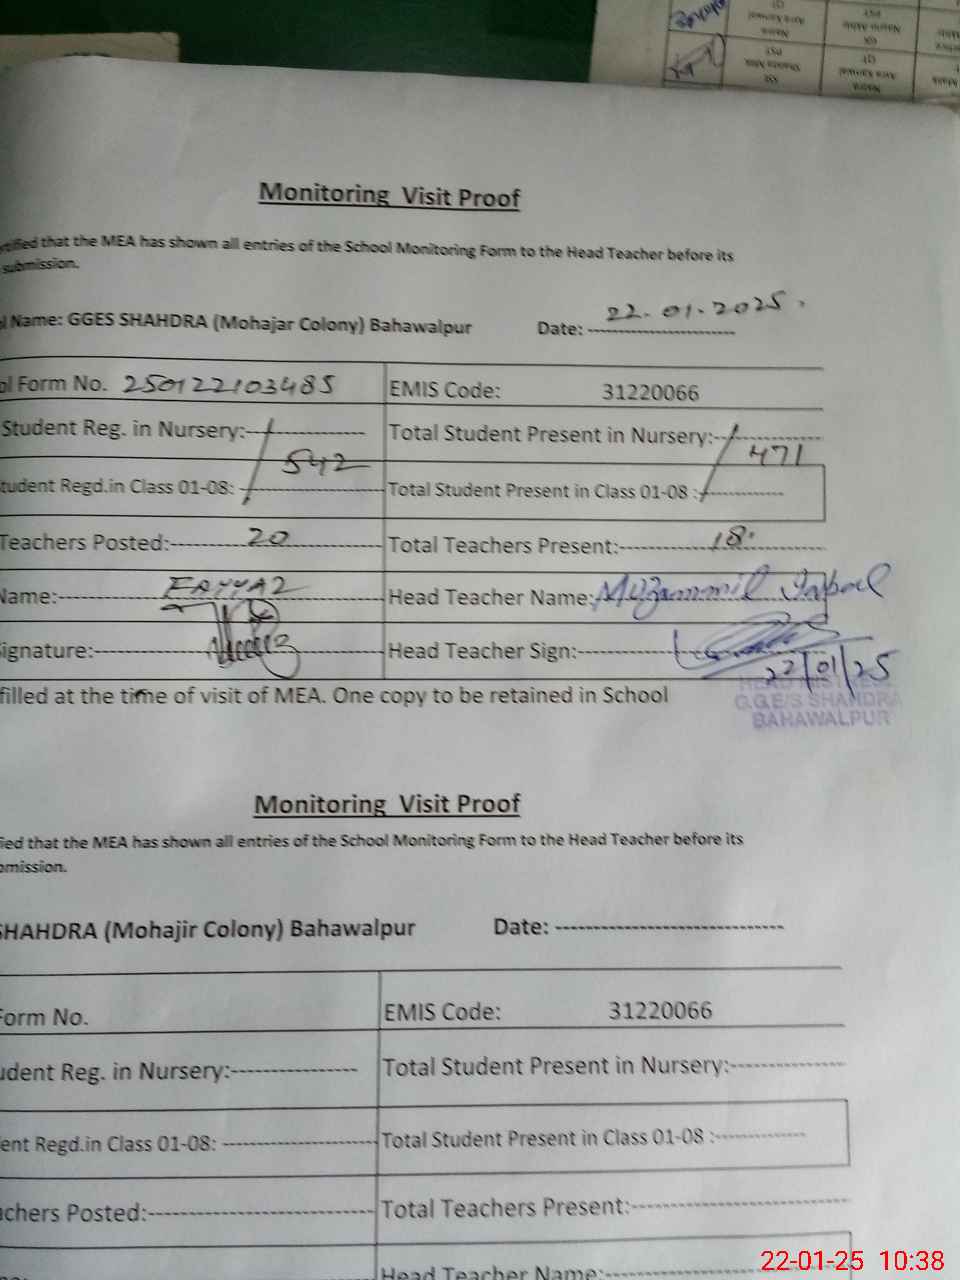 Monitoring Visit Proof
that the MEA has shown all entries of the School Monitoring Form to the Head Teacher before its
submission.
Name: GGES SHAHDRA (Mohajar Colony) Bahawalpur Date: 22.01.2025.
Form No. 250122103485 EMIS Code: 31220066
Student Reg. in Nursery:--------------- Total Student Present in Nursery:---------------
542 471
tudent Regd.in Class 01-08: --------------- Total Student Present in Class 01-08 :---------------
Teachers Posted: 20 Total Teachers Present: 18
Name: Head Teacher Name: Muzammil Iqbal
ignature: Head Teacher Sign:
22/01/25
filled at the time of visit of MEA. One copy to be retained in School
G.G.E/S SHAHDRA
BAHAWALPUR
Monitoring Visit Proof
fied that the MEA has shown all entries of the School Monitoring Form to the Head Teacher before its
mission.
SHAHDRA (Mohajir Colony) Bahawalpur Date: ------------------------------
Form No. EMIS Code: 31220066
udent Reg. in Nursery:---------------- Total Student Present in Nursery:---------------
ent Regd.in Class 01-08: -------------------- Total Student Present in Class 01-08 :--------------
achers Posted:----------------------------- Total Teachers Present:----------------------------
Head Teacher Name:----------------------------
22-01-25 10:38